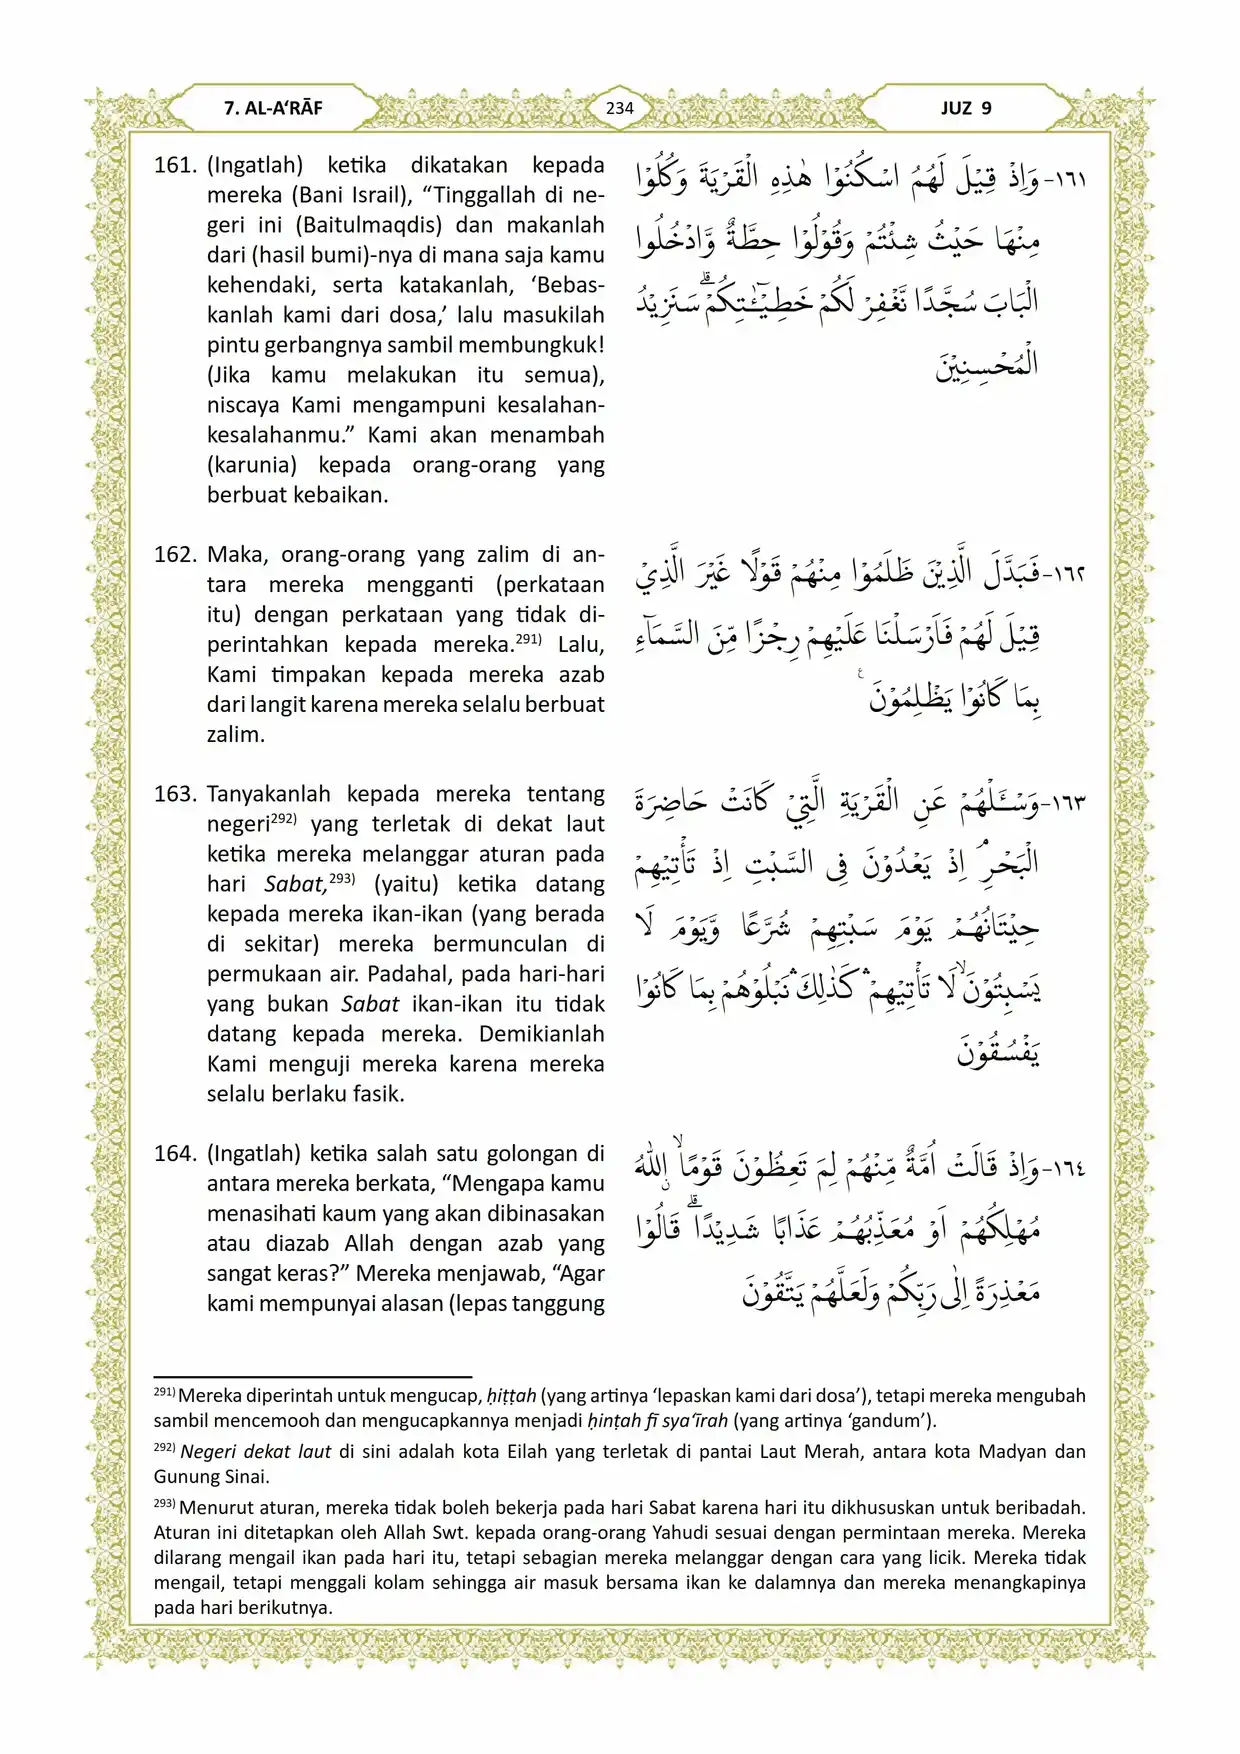 7. AL-A‘RĀF
234
JUZ 9
161. (Ingatlah) ketika dikatakan kepada
mereka (Bani Israil), “Tinggallah di ne-
geri ini (Baitulmaqdis) dan makanlah
dari (hasil bumi)-nya di mana saja kamu
kehendaki, serta katakanlah, ‘Bebas-
kanlah kami dari dosa,’ lalu masukilah
pintu gerbangnya sambil membungkuk!
(Jika kamu melakukan itu semua),
niscaya Kami mengampuni kesalahan-
kesalahanmu.” Kami akan menambah
(karunia) kepada orang-orang yang
berbuat kebaikan.
١٦١- وَاِذْ قِيْلَ لَهُمُ اسْكُنُوْا هٰذِهِ الْقَرْيَةَ وَكُلُوْا
مِنْهَا حَيْثُ شِئْتُمْ وَقُوْلُوْا حِطَّةٌ وَّادْخُلُوا
الْبَابَ سُجَّدًا نَّغْفِرْ لَكُمْ خَطِيْۤـٰٔتِكُمْۗ سَنَزِيْدُ
الْمُحْسِنِيْنَ
162. Maka, orang-orang yang zalim di an-
tara mereka mengganti (perkataan
itu) dengan perkataan yang tidak di-
perintahkan kepada mereka.291) Lalu,
Kami timpakan kepada mereka azab
dari langit karena mereka selalu berbuat
zalim.
١٦٢- فَبَدَّلَ الَّذِيْنَ ظَلَمُوْا مِنْهُمْ قَوْلًا غَيْرَ الَّذِيْ
قِيْلَ لَهُمْ فَاَرْسَلْنَا عَلَيْهِمْ رِجْزًا مِّنَ السَّمَاۤءِ
بِمَا كَانُوْا يَظْلِمُوْنَ ࣖ
163. Tanyakanlah kepada mereka tentang
negeri292) yang terletak di dekat laut
ketika mereka melanggar aturan pada
hari Sabat,293) (yaitu) ketika datang
kepada mereka ikan-ikan (yang berada
di sekitar) mereka bermunculan di
permukaan air. Padahal, pada hari-hari
yang bukan Sabat ikan-ikan itu tidak
datang kepada mereka. Demikianlah
Kami menguji mereka karena mereka
selalu berlaku fasik.
١٦٣- وَسْـَٔلْهُمْ عَنِ الْقَرْيَةِ الَّتِيْ كَانَتْ حَاضِرَةَ
الْبَحْرِۘ اِذْ يَعْدُوْنَ فِى السَّبْتِ اِذْ تَأْتِيْهِمْ
حِيْتَانُهُمْ يَوْمَ سَبْتِهِمْ شُرَّعًا وَّيَوْمَ لَا
يَسْبِتُوْنَۙ لَا تَأْتِيْهِمْ ۛ كَذٰلِكَ ۛ نَبْلُوْهُمْ بِمَا كَانُوْا
يَفْسُقُوْنَ
164. (Ingatlah) ketika salah satu golongan di
antara mereka berkata, “Mengapa kamu
menasihati kaum yang akan dibinasakan
atau diazab Allah dengan azab yang
sangat keras?” Mereka menjawab, “Agar
kami mempunyai alasan (lepas tanggung
١٦٤- وَاِذْ قَالَتْ اُمَّةٌ مِّنْهُمْ لِمَ تَعِظُوْنَ قَوْمًاۙ ۨاللّٰهُ
مُهْلِكُهُمْ اَوْ مُعَذِّبُهُمْ عَذَابًا شَدِيْدًاۗ قَالُوْا
مَعْذِرَةً اِلٰى رَبِّكُمْ وَلَعَلَّهُمْ يَتَّقُوْنَ
291) Mereka diperintah untuk mengucap, ḥiṭṭah (yang artinya ‘lepaskan kami dari dosa’), tetapi mereka mengubah
sambil mencemooh dan mengucapkannya menjadi ḥinṭah fī sya‘īrah (yang artinya ‘gandum’).
292) Negeri dekat laut di sini adalah kota Eilah yang terletak di pantai Laut Merah, antara kota Madyan dan
Gunung Sinai.
293) Menurut aturan, mereka tidak boleh bekerja pada hari Sabat karena hari itu dikhususkan untuk beribadah.
Aturan ini ditetapkan oleh Allah Swt. kepada orang-orang Yahudi sesuai dengan permintaan mereka. Mereka
dilarang mengail ikan pada hari itu, tetapi sebagian mereka melanggar dengan cara yang licik. Mereka tidak
mengail, tetapi menggali kolam sehingga air masuk bersama ikan ke dalamnya dan mereka menangkapinya
pada hari berikutnya.